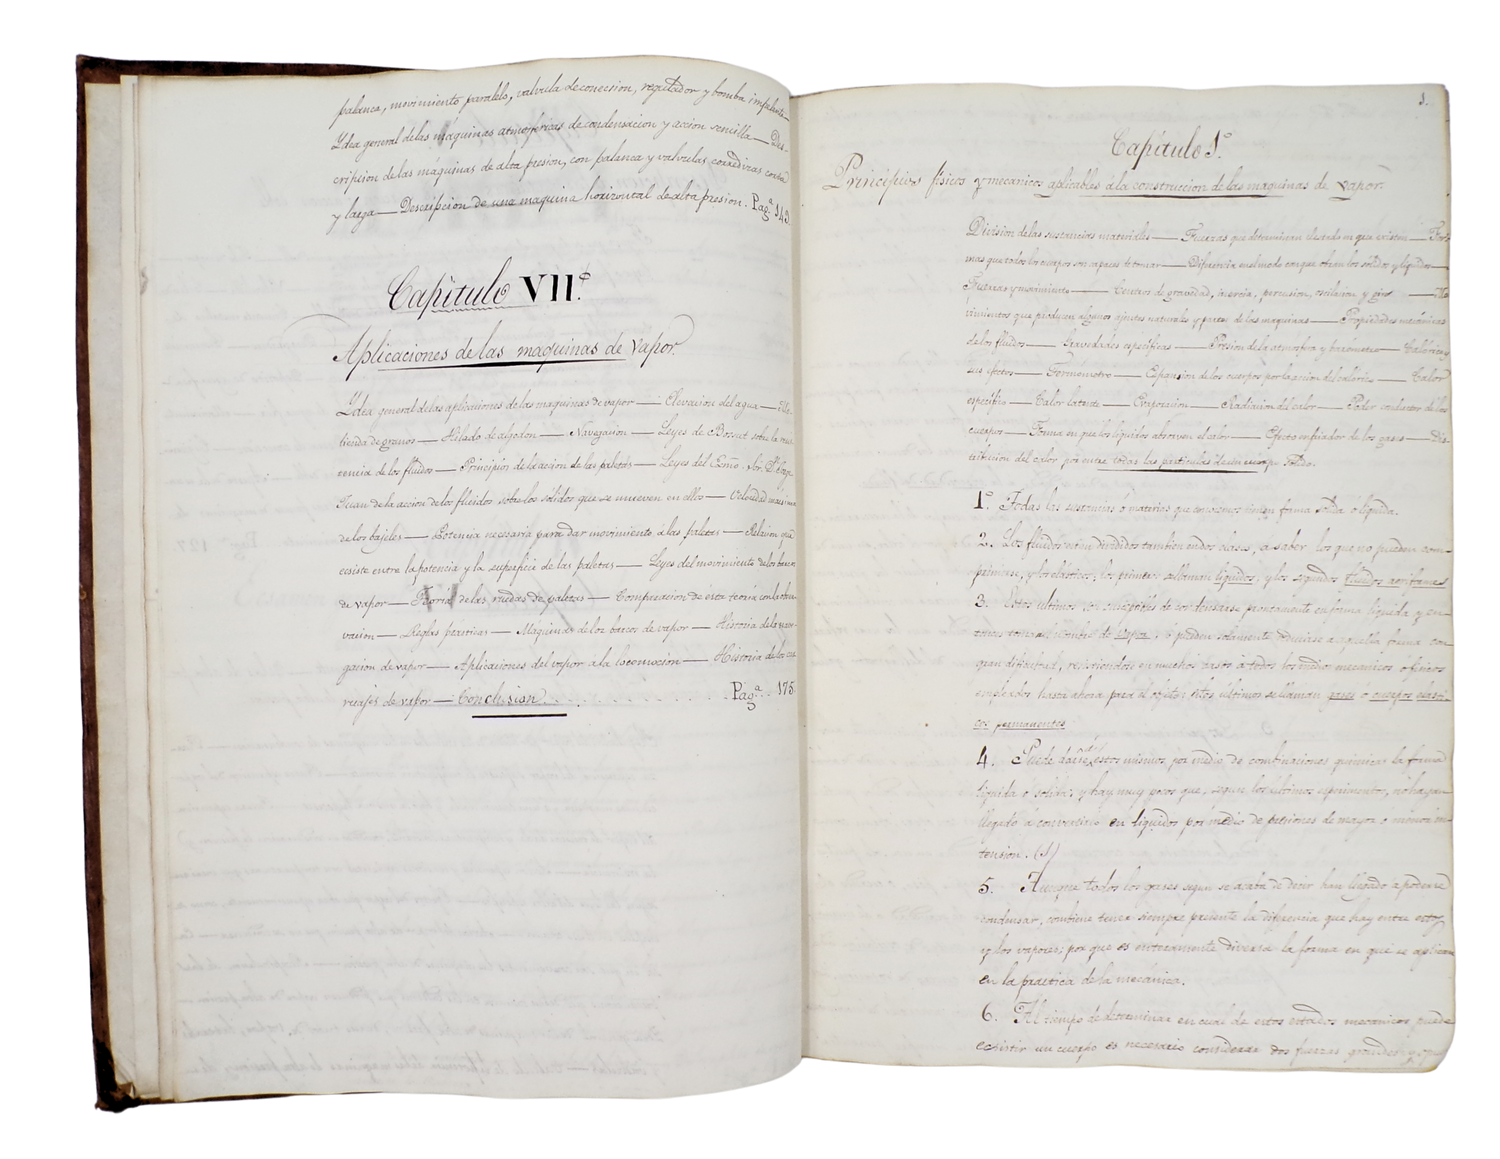 palanca, movimiento paralelo, valvula de coneccion, regulador y bomba impelente—
Ydea general de las máquinas atmosfericas de condensacion y accion sencilla — Des-
cripcion de las máquinas de alta presion, con palanca y valvulas corredizas corta
y larga — Descripcion de una maquina horizontal de alta presion. Pag.ª 143.
Capitulo VII.º
Aplicaciones de las maquinas de vapor.
Ydea general de las aplicaciones de las maquinas de vapor — Elevacion del agua — Mo-
lienda de granos — Hilado de algodon — Navegacion — Leyes de Bossut sobre la resis-
tencia de los fluidos — Principios de la accion de las paletas — Leyes del Exmo. Sor. D. Jorge
Juan de la accion de los fluidos sobre los solidos que se mueven en ellos — Velocidad maxima
de los bajeles — Potencia necesaria para dar movimiento á las paletas — Relacion que
ecsiste entre la potencia y la superficie de las paletas — Leyes del movimiento de los barcos
de vapor — Teoria de las ruedas de paletas — Comparacion de ésta teoria con la obser-
vacion — Reglas practicas — Máquinas de los barcos de vapor — Historia de la nave-
gacion de vapor — Aplicaciones del vapor á la locomocion — Historia de los car-
ruages de vapor — Conclusion . . . . . . . . . . Pag.ª 175
1.
Capitulo 1.º
Principios fisicos y mecanicos aplicables á la construccion de las maquinas de vapor.
Division de las sustancias materiales — Fuerzas que determinan el estado en que existen — For-
mas que todos los cuerpos son capaces de tomar — Diferencia en el modo con que obran los sólidos y líquidos —
Fuerzas y movimiento — Centros de gravedad, inercia, percusion, oscilacion y giro — Mo-
vimientos que producen algunos ajentes naturales y partes de las maquinas — Propiedades mecánicas
de los fluidos — Gravedades especificas — Presion de la atmosfera y barómetro — Calórico y
sus efectos — Termómetro — Espansion de los cuerpos por la accion del calórico — Calor
especifico — Calor latente — Evaporacion — Radiacion del calor — Poder conductor de los
cuerpos — Forma en que los líquidos absorven el calor — Efecto enfriador de los gases — Dis-
tribucion del calor por entre todas las particulas de un cuerpo solido.
1.º Todas las sustancias ó materias que conocemos tienen forma solida ó líquida.
2. Los fluidos estan divididos tambien en dos clases, a saber los que no pueden com-
primirse, y los elásticos; los primeros se llaman líquidos, y los segundos fluidos aeriformes
3. Estos ultimos son susceptibles de condensarse prontamente en forma líquida y en-
tonces toman el nombre de vapor, ó pueden solamente reducirse a aquella forma con
gran dificultad, resistiendose en muchos casos á todos los medios mecanicos o fisicos
empleados hasta ahora para el efecto: estos últimos se llaman gases o cuerpos elasti-
cos permanentes
4. Puede darse á estos mismos, por medio de combinaciones quimicas la forma
liquida o solida; y hay muy pocos que, segun los últimos esperimentos, no hayan
llegado a convertirse en líquidos por medio de presiones de mayor o menor in-
tension. (1)
5. Aunque todos los gases segun se acaba de decir han llegado á poderse
condensar, combiene tener siempre presente la diferencia que hay entre estos
y los vapores; por que es enteramente diversa la forma en que se aplican
en la practica de la mecánica.
6. Al tiempo de determinar en cual de estos estados mecanicos puede
ecsistir un cuerpo es necesario considerar dos fuerzas grandes y opues